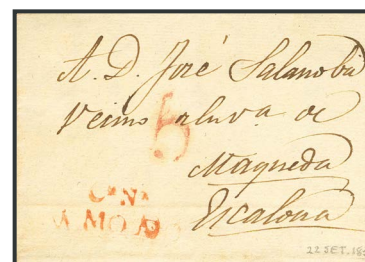 A. D. José Salanoba
Vecino de la v.ª de
5
Maqueda
Cª Nª
Escalona
22 SET. 18